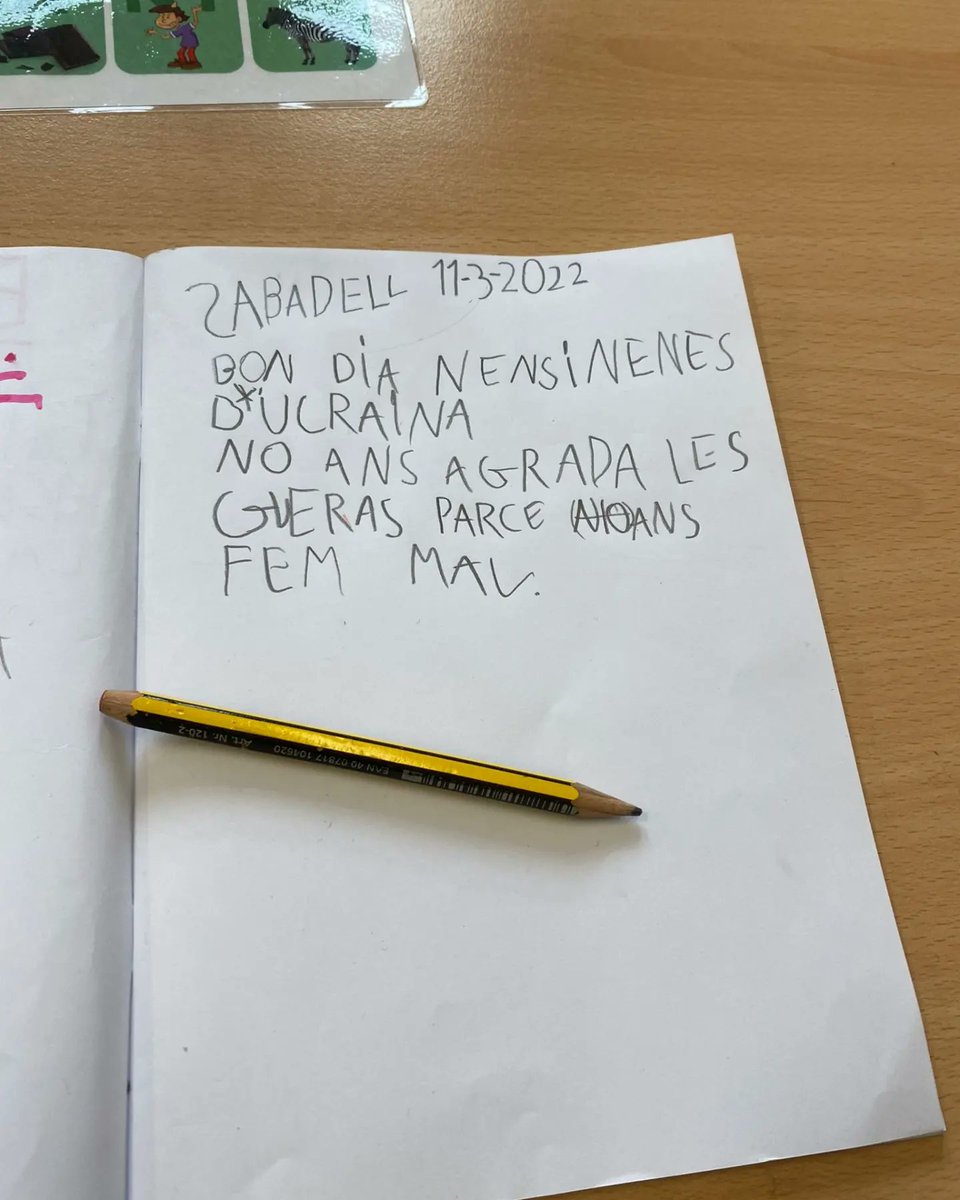 SABADELL 11-3-2022
BON DIA NENSINENES
D'UCRAINA
NO ANS AGRADA LES
GUERAS PARCE ANS
FEM MAL.
Art. Nr. 120-2
EAN 40 07817 104620